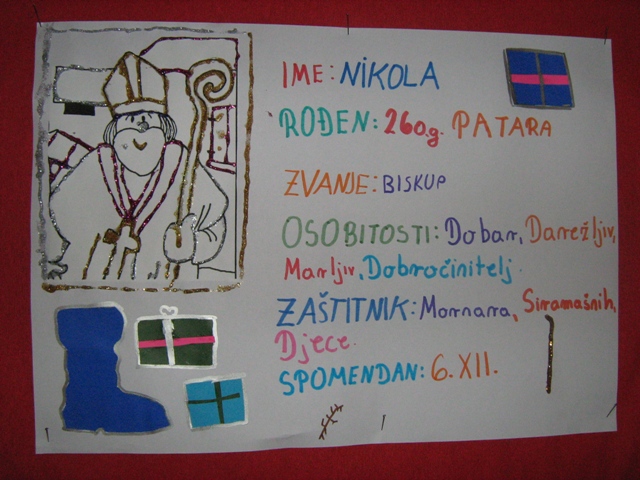 IME: NIKOLA
ROĐEN: 260.g. PATARA
ZVANJE: BISKUP
OSOBITOSTI: Dobar, Darežljiv,
Marljiv, Dobročinitelj.
ZAŠTITNIK: Mornara, Siromašnih,
Djece.
SPOMENDAN: 6. XII.